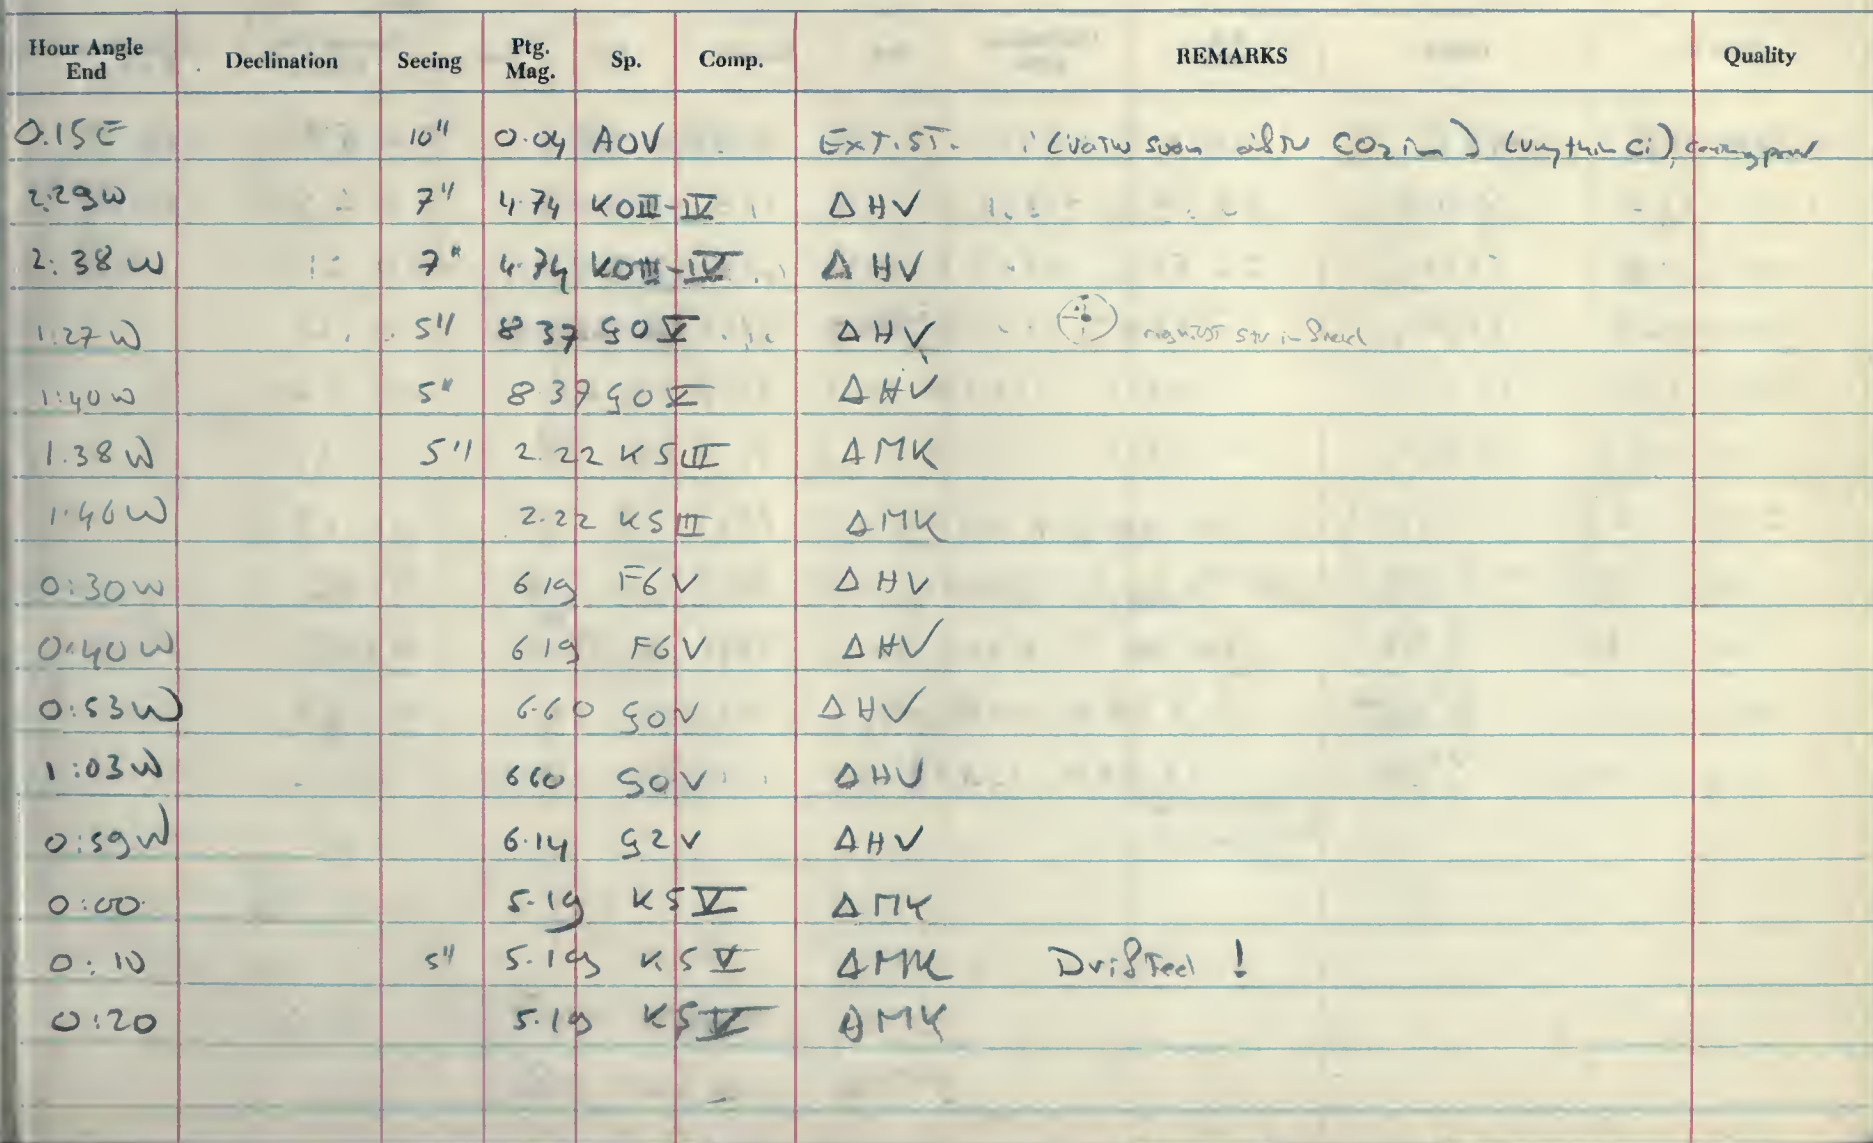 Hour Angle End Declination Seeing Ptg. Mag. Sp. Comp. REMARKS Quality
0.15E 10" 0.04 A0V EXT. ST. CO2 in) (very thin Ci),
2:29W 7" 4.74 K0III-IV ΔHV
2:38W 7" 4.74 K0III-IV ΔHV
1:27W 5" 8 37 G0V ΔHV in field
1:40W 5" 8 37 G0V ΔHV
1.38W 5" 2.22 K5III ΔMK
1:46W 2.22 K5III ΔMK
0:30W 6 19 F6V ΔHV
0:40W 6 19 F6V ΔHV
0:53W 6.60 G0V ΔHV
1:03W 660 G0V ΔHV
0:59W 6.14 G2V ΔHV
0:00 5.19 K5V ΔMK
0:10 5" 5.19 K5V ΔMK Drifted !
0:20 5.19 K5V ΔMK